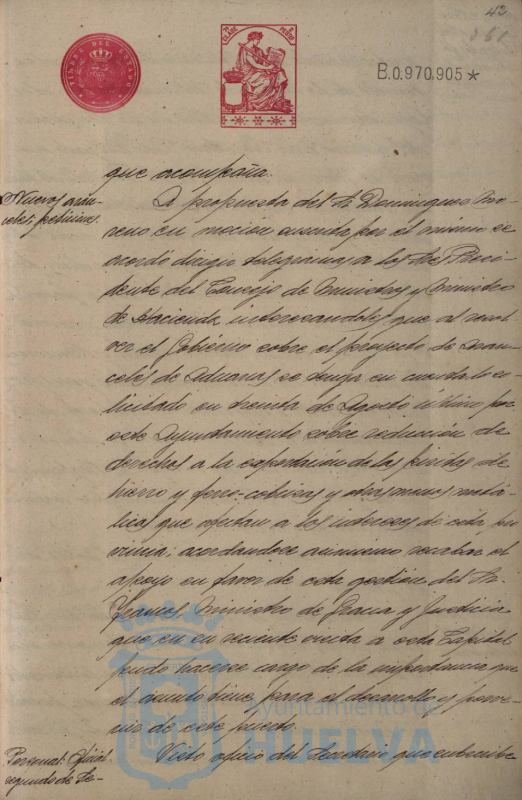 42
B.0.970.905*
TIMBRE DEL ESTADO
que acompaña.
Nuevos aran-
celes; peticiones.
A propuesta del Sr. Dominguez Mo-
reno en mocion suscrita por el mismo se
acordó dirigir telegramas a los Sres. Presi-
dente del Consejo de Ministros y Ministro
de Hacienda interesandoles que al resol-
ver el Gobierno sobre el proyecto de Aran-
celes de Aduanas se tenga en cuenta lo so-
licitado en treinta de Agosto ultimo por
este Ayuntamiento sobre reducción de
derechos a la exportación de las piritas de
hierro y ferro-cobrizas y otras menas metá-
licas que afectan a los intereses de esta pro-
vincia; acordandose asimismo recabar el
apoyo en favor de esta gestion del Sr.
Ministro de Gracia y Justicia
que en su reciente visita a esta Capital
pudo hacerse cargo de la importancia que
el asunto tiene para el desarrollo y porve-
nir de este puerto.
Personal: Oficial
segundo de Se-
Visto oficio del Secretario que suscribe
Ayuntamiento de
HUELVA